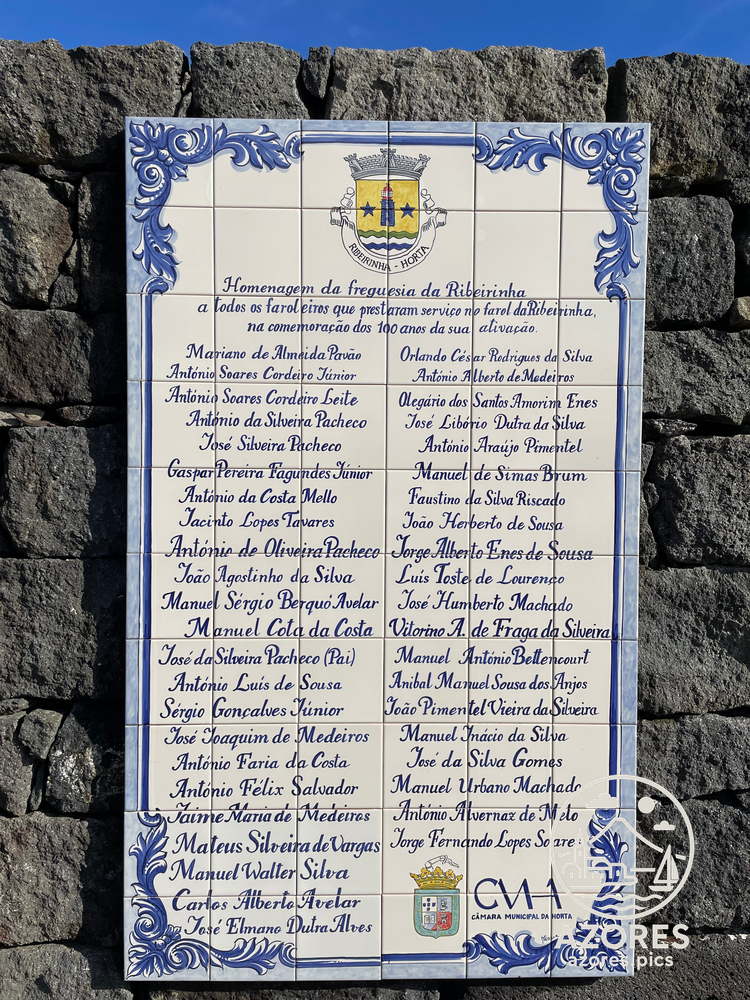 RIBEIRINHA - HORTA
Homenagem da freguesia da Ribeirinha
a todos os faroleiros que prestaram serviço no farol da Ribeirinha,
na comemoração dos 100 anos da sua ativação.
Mariano de Almeida Pavão
António Soares Cordeiro Júnior
António Soares Cordeiro Leite
António da Silveira Pacheco
José Silveira Pacheco
Gaspar Pereira Fagundes Júnior
António da Costa Mello
Jacinto Lopes Tavares
António de Oliveira Pacheco
João Agostinho da Silva
Manuel Sérgio Berquó Avelar
Manuel Cota da Costa
José da Silveira Pacheco (Pai)
António Luís de Sousa
Sérgio Gonçalves Júnior
José Joaquim de Medeiros
António Faria da Costa
António Félix Salvador
Jaime Maria de Medeiros
Mateus Silveira de Vargas
Manuel Walter Silva
Carlos Alberto Avelar
José Elmano Dutra Alves
Orlando César Rodrigues da Silva
António Alberto de Medeiros
Olegário dos Santos Amorim Enes
José Libório Dutra da Silva
António Araújo Pimentel
Manuel de Simas Brum
Faustino da Silva Riscado
João Herberto de Sousa
Jorge Alberto Enes de Sousa
Luís Toste de Lourenço
José Humberto Machado
Vitorino A. de Fraga da Silveira
Manuel António Bettencourt
Anibal Manuel Sousa dos Anjos
João Pimentel Vieira da Silveira
Manuel Inácio da Silva
José da Silva Gomes
Manuel Urbano Machado
António Alvernaz de Melo
Jorge Fernando Lopes Soares
CMH
CÂMARA MUNICIPAL DA HORTA
AZORES
azores.pics